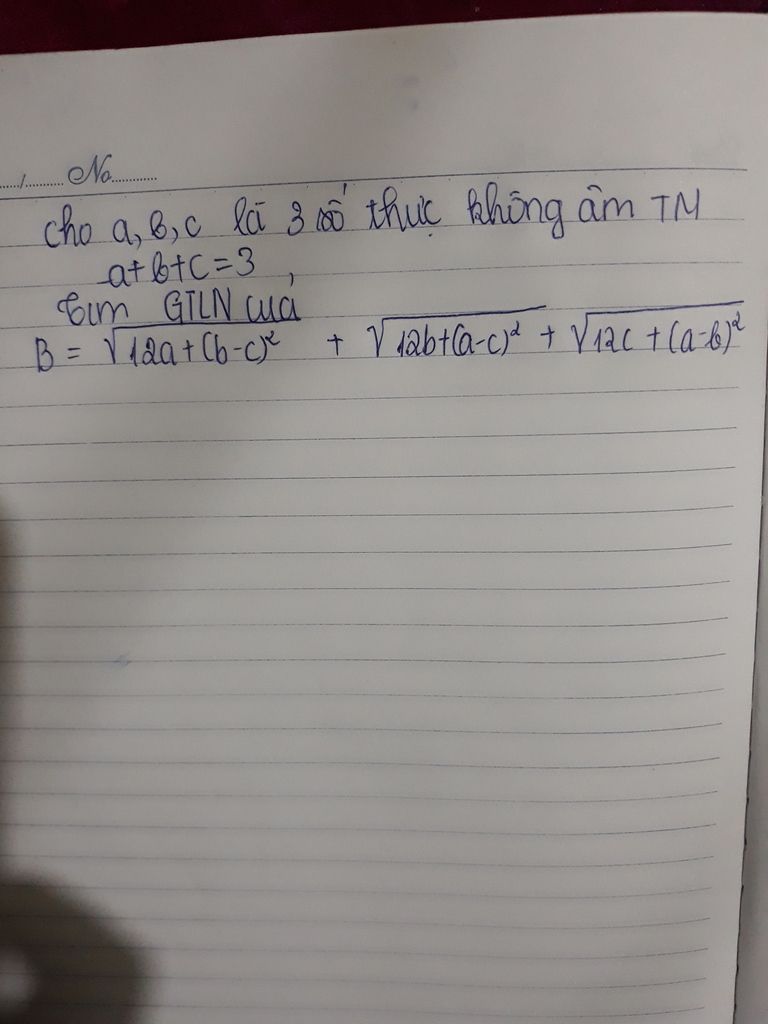 No.
Cho a, b, c là 3 số thực không âm TM
a+b+c=3,
tìm GTLN của
B = √12a+(b-c)² + √12b+(a-c)² + √12c+(a-b)²